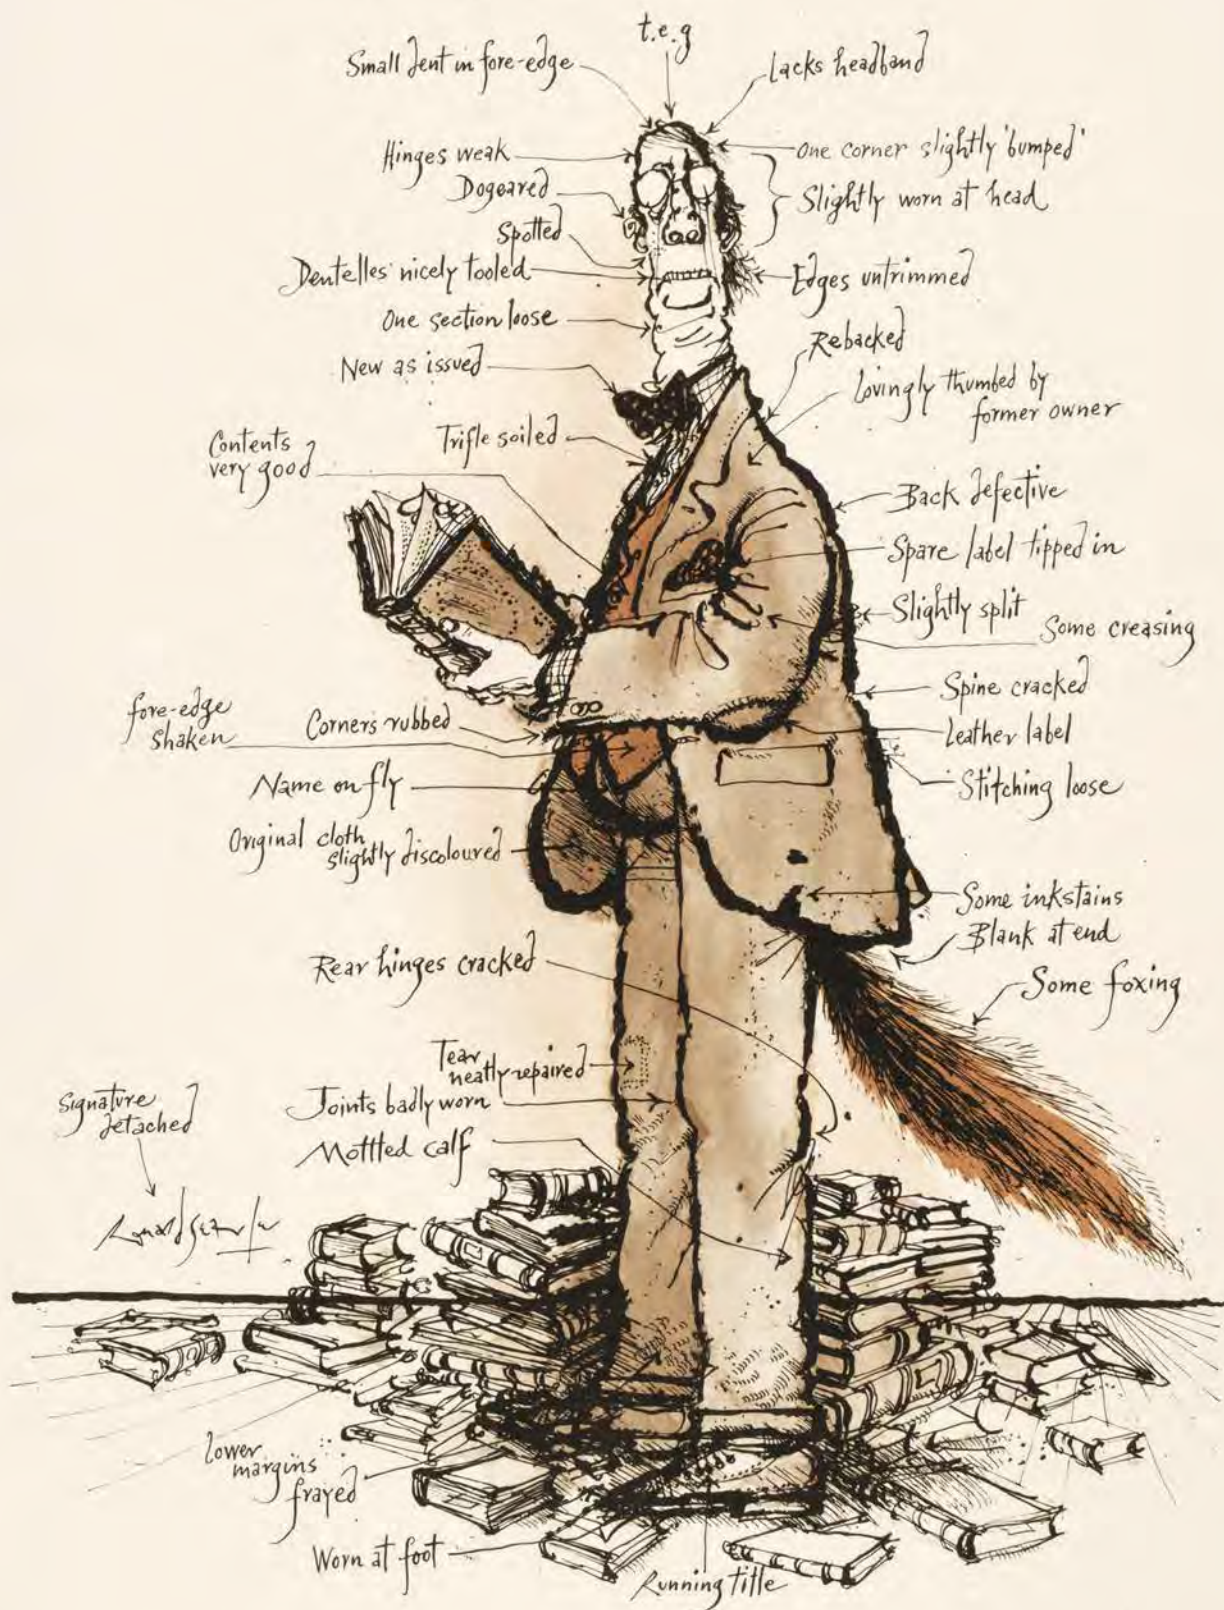 t.e.g
Small dent in fore-edge
Lacks headband
Hinges weak
One corner slightly 'bumped'
Dogeared
Slightly worn at head
Spotted
Dentelles nicely tooled
Edges untrimmed
One section loose
Rebacked
New as issued
Lovingly thumbed by
former owner
Trifle soiled
Contents
very good
Back defective
Spare label tipped in
Slightly split
Some creasing
Spine cracked
fore-edge
shaken
Corners rubbed
Leather label
Name on fly
Stitching loose
Original cloth
slightly discoloured
Some inkstains
Blank at end
Rear hinges cracked
Some foxing
Tear
neatly repaired
Joints badly worn
Signature
detached
Mottled calf
Ronald Searle
lower
margins
frayed
Worn at foot
Running title